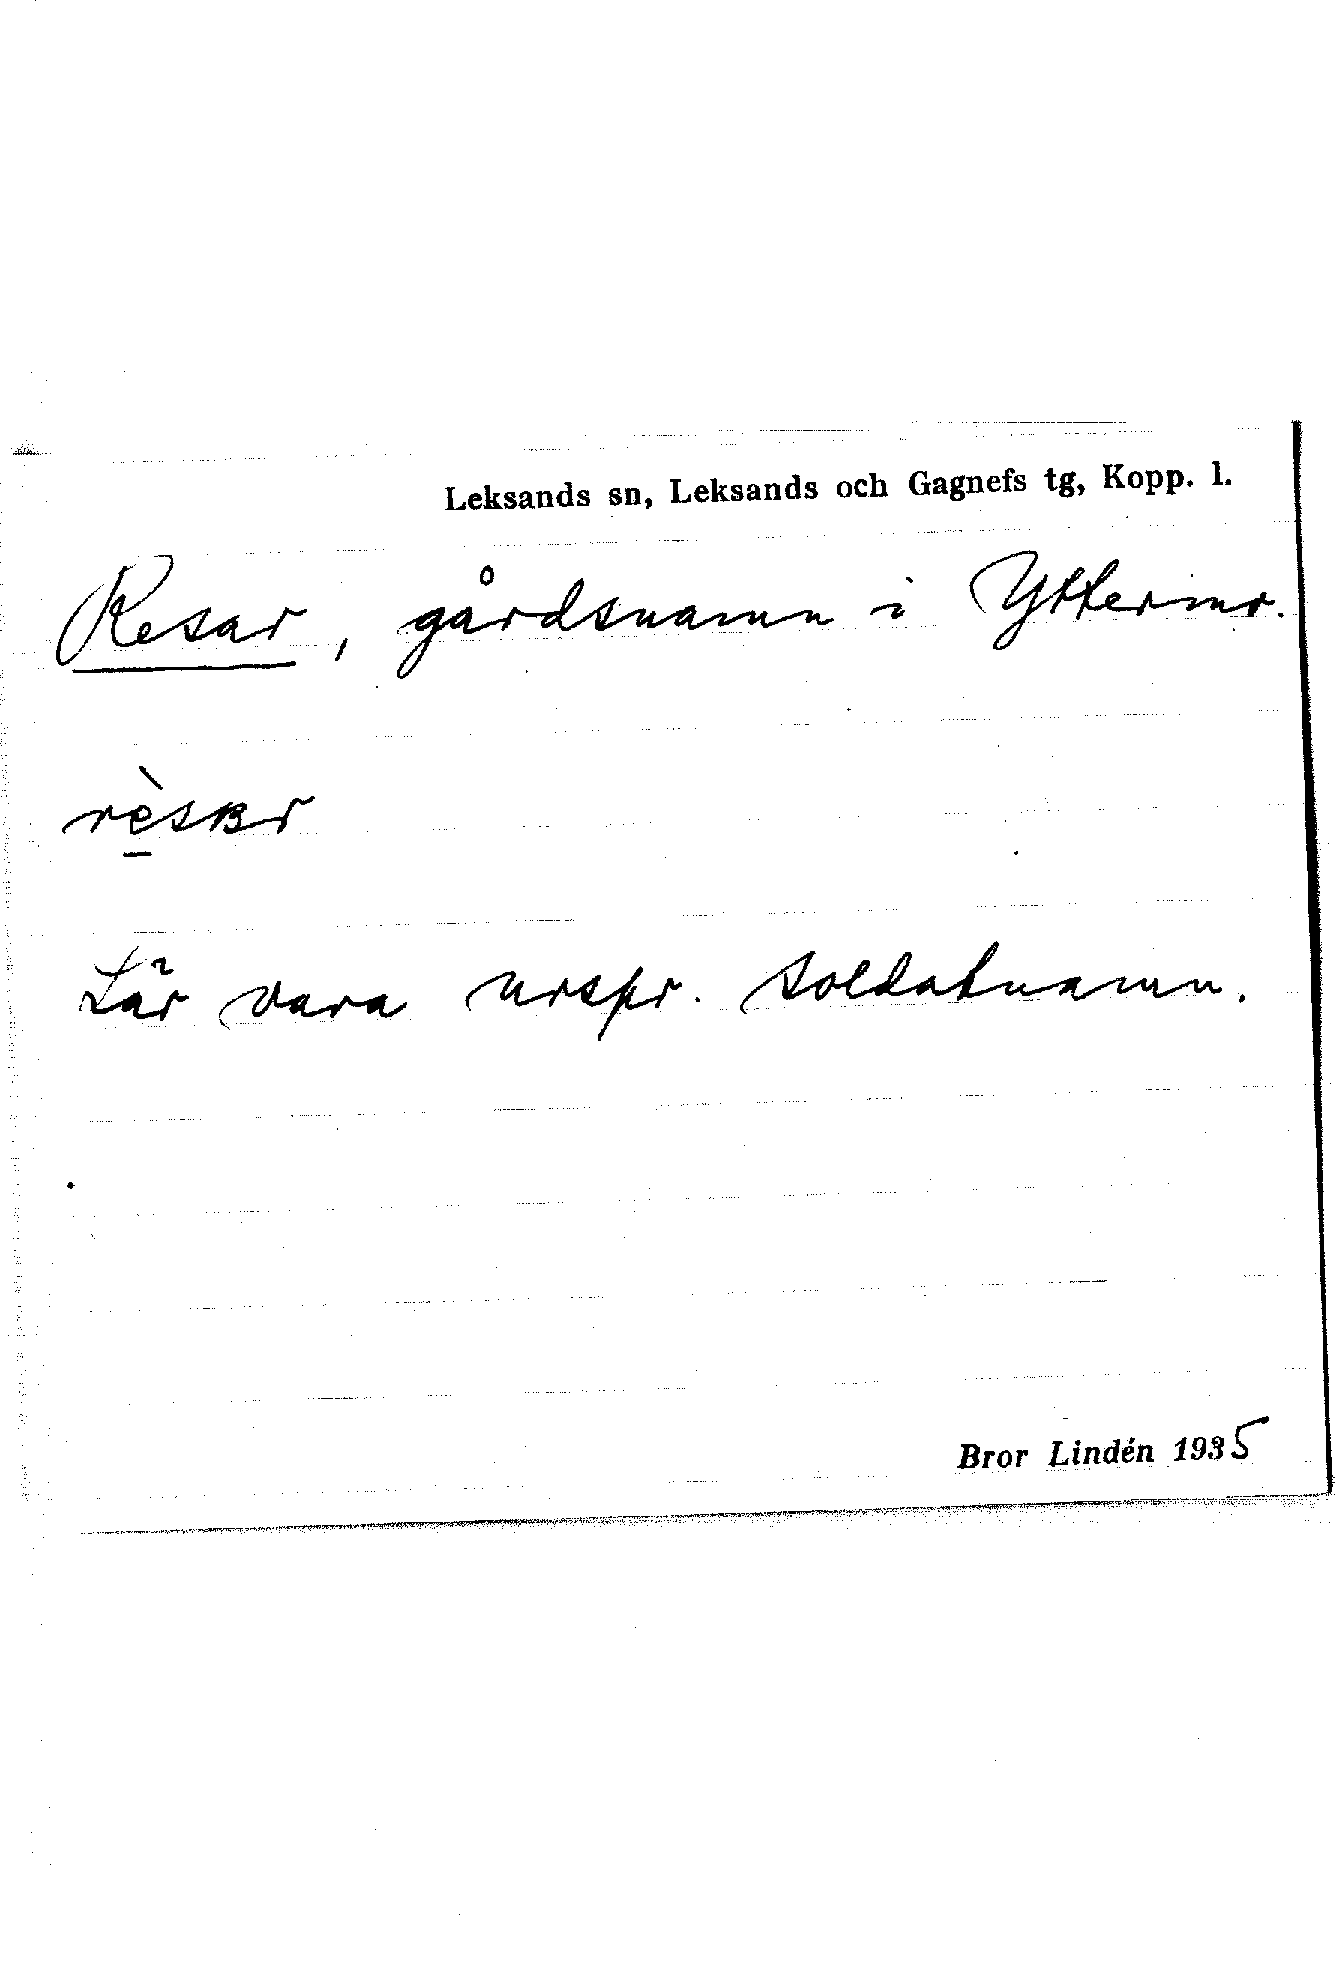 Leksands sn, Leksands och Gagnefs tg, Kopp. l.
Resar, gårdsnamn i Yttermo.
rèsʙr
Lär vara urspr. soldatnamn.
Bror Lindén 1935